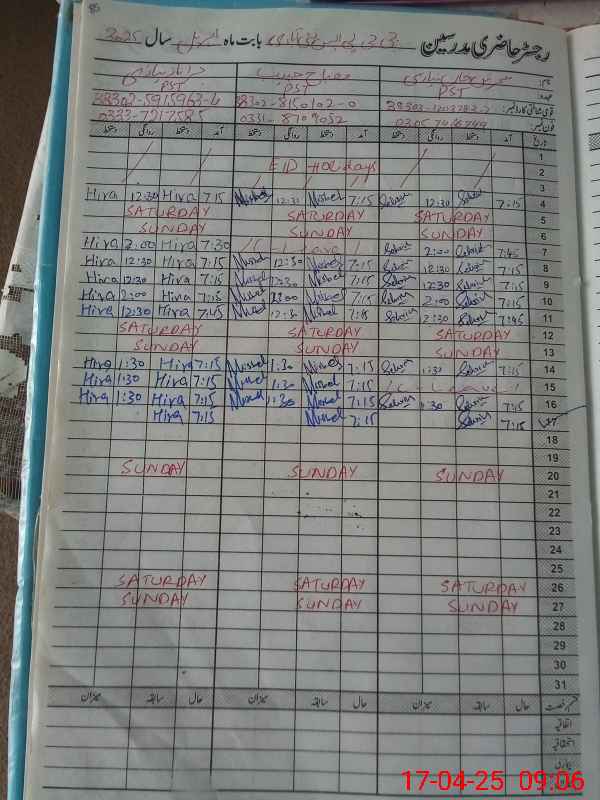 رجسٹر حاضری مدرسین بابت ماہ اپریل سال 2025
نام:
PST PST PST
عہدہ:
قومی شناختی کارڈ نمبر: 38302-8150102-0 38302-5915963-4
فون نمبر: 0331-8709052 0333-7217585
تاریخ آمد دستخط روانگی دستخط آمد دستخط روانگی دستخط آمد دستخط روانگی دستخط
1
EID Holidays 2
3
Hira 12:30 Hira 7:15 Mishel 12:30 Mishel 7:15 12:30 7:15 4
SATURDAY SATURDAY SATURDAY 5
SUNDAY SUNDAY SUNDAY 6
Hira 2:00 Hira 7:30 / C - Leave / 2:00 7:45 7
Hira 12:30 Hira 7:15 Mishel 12:30 Mishel 7:15 12:30 7:15 8
Hira 12:30 Hira 7:15 Mishel 12:30 Mishel 7:15 12:30 7:15 9
Hira 2:00 Hira 7:15 Mishel 2:00 Mishel 7:15 2:00 7:15 10
Hira 12:30 Hira 7:45 Mishel 12:30 Mishel 7:15 12:30 7:45 11
SATURDAY SATURDAY SATURDAY 12
SUNDAY SUNDAY SUNDAY 13
Hira 1:30 Hira 7:15 Mishel 1:30 Mishel 7:15 1:30 7:15 14
Hira 1:30 Hira 7:15 Mishel 1:30 Mishel 7:15 / C - Leave / 15
Hira 1:30 Hira 7:15 Mishel 1:30 Mishel 7:15 1:30 7:15 16
Hira 7:15 Mishel 7:15 7:15 17
18
19
SUNDAY SUNDAY SUNDAY 20
21
22
23
24
25
SATURDAY SATURDAY SATURDAY 26
SUNDAY SUNDAY SUNDAY 27
28
29
30
31
قسم رخصت حال سابقہ میزان حال سابقہ میزان حال سابقہ میزان
اتفاقیہ
استحقاقیہ
بیماری
17-04-25 09:06